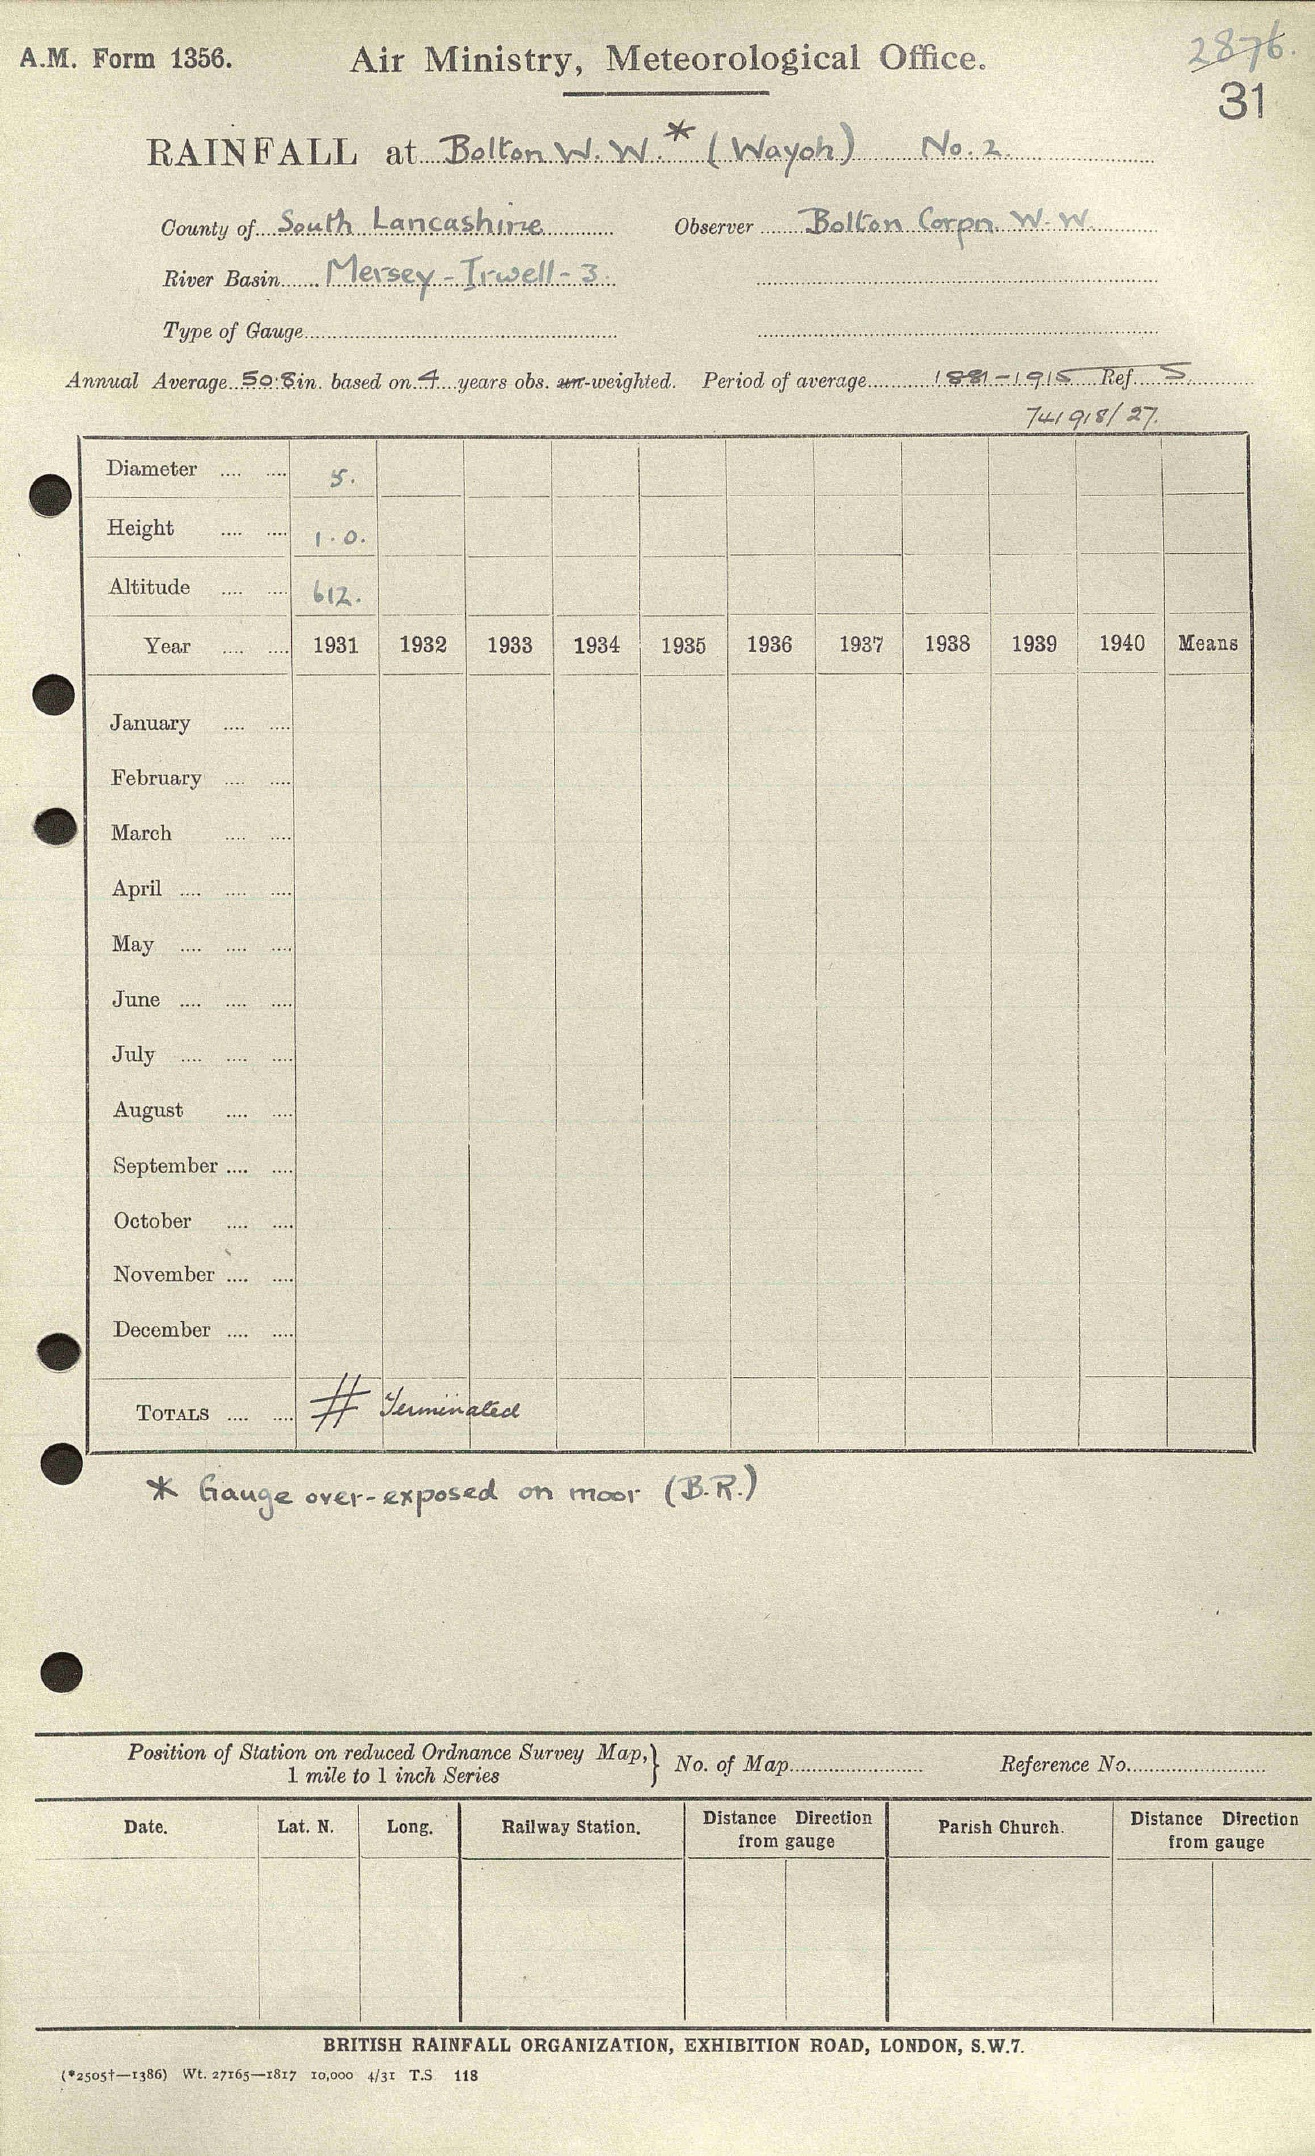 A.M. Form 1356. Air Ministry, Meteorological Office. 2876.
31
RAINFALL at Bolton W. W.* (Wayoh) No. 2.
County of South Lancashire Observer Bolton Corpn. W. W.
River Basin Mersey - Irwell - 3.
Type of Gauge
Annual Average 50.8 in. based on 4 years obs. un-weighted. Period of average 1881-1915 Ref. S.
741918/27.
Diameter .... .... 5.
Height .... .... 1.0.
Altitude .... .... 612.
Year .... .... 1931 1932 1933 1934 1935 1936 1937 1938 1939 1940 Means
January .... ....
February .... ....
March .... ....
April .... .... ....
May .... .... ....
June .... .... ....
July .... .... ....
August .... ....
September .... ....
October .... ....
November .... ....
December .... ....
TOTALS .... .... # Terminated
* Gauge over-exposed on moor (B.R.)
Position of Station on reduced Ordnance Survey Map, } No. of Map Reference No.
1 mile to 1 inch Series
Date. Lat. N. Long. Railway Station. Distance Direction from gauge Parish Church. Distance Direction from gauge
BRITISH RAINFALL ORGANIZATION, EXHIBITION ROAD, LONDON, S.W.7.
(*2505†—1386) Wt. 27165—1817 10,000 4/31 T.S 118